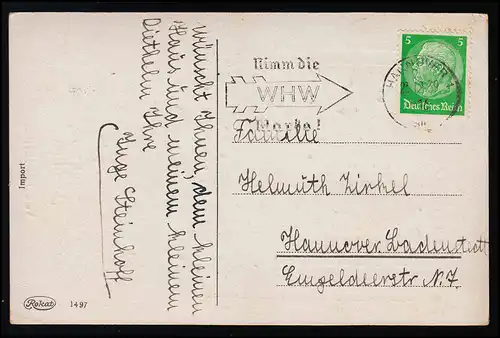 wünscht Ihnen, dem kleinen
Haus und meinem kleinen
Diethelm Ihre
Inge Steinhoff
Import
Rokat
1497
Nimm die
WHW
Marke!
HANNOVER
5 5
Deutsches Reich
Familie
Helmuth Zirkel
Hannover-Badenstedt
Eingeldeerstr N. 7